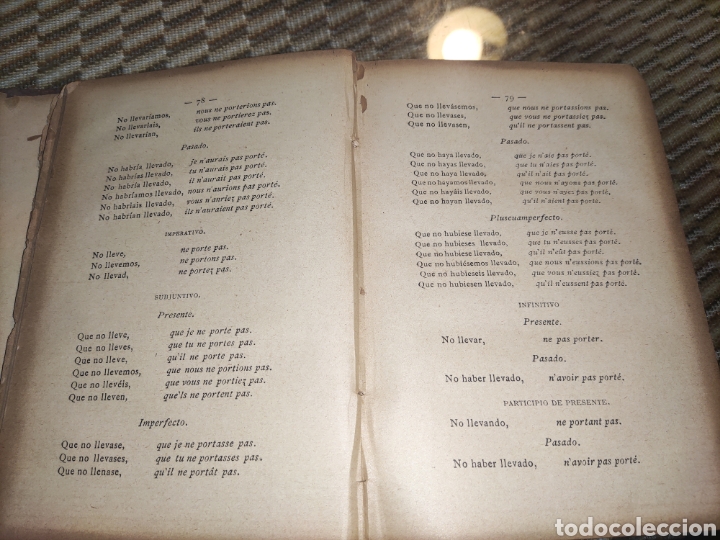 — 78 —
No llevaríamos, nous ne porterions pas.
No llevaríais, vous ne porteriez pas.
No llevarían, ils ne porteraient pas.
Pasado.
No habría llevado, je n'aurais pas porté.
No habrías llevado, tu n'aurais pas porté.
No habría llevado, il n'aurait pas porté.
No habríamos llevado, nous n'aurions pas porté.
No habríais llevado, vous n'auriez pas porté.
No habrían llevado, ils n'auraient pas porté.
IMPERATIVO.
No lleve, ne porte pas.
No llevemos, ne portons pas.
No llevad, ne portez pas.
SUBJUNTIVO.
Presente.
Que no lleve, que je ne porte pas.
Que no lleves, que tu ne portes pas.
Que no lleve, qu'il ne porte pas.
Que no llevemos, que nous ne portions pas.
Que no llevéis, que vous ne portiez pas.
Que no lleven, qu'ils ne portent pas.
Imperfecto.
Que no llevase, que je ne portasse pas.
Que no llevases, que tu ne portasses pas.
Que no llenase, qu'il ne portât pas.
— 79 —
Que no llevásemos, que nous ne portassions pas.
Que no llevases, que vous ne portassiez pas.
Que no llevasen, qu'il ne portassent pas.
Pasado.
Que no haya llevado, que je n'aie pas porté.
Que no hayas llevado, que tu n'aies pas porté.
Que no haya llevado, qu'il n'ait pas porté.
Que no hayamos llevado, que nous n'ayons pas porté.
Que no hayáis llevado, que vous n'ayez pas porté.
Que no hayan llevado, qu'il n'aient pas porté.
Pluscuamperfecto.
Que no hubiese llevado, que je n'eusse pas porté.
Que no hubieses llevado, que tu n'eusses pas porté.
Que no hubiese llevado, qu'il n'eût pas porté.
Que no hubiésemos llevado, que nous n'eussions pas porté.
Que no hubieseis llevado, que vous n'eussiez pas porté.
Que no hubiesen llevado, qu'il n'eussent pas porté.
INFINITIVO
Presente.
No llevar, ne pas porter.
Pasado.
No haber llevado, n'avoir pas porté.
PARTICIPIO DE PRESENTE.
No llevando, ne portant pas.
Pasado.
No haber llevado, n'avoir pas porté.
todocoleccion